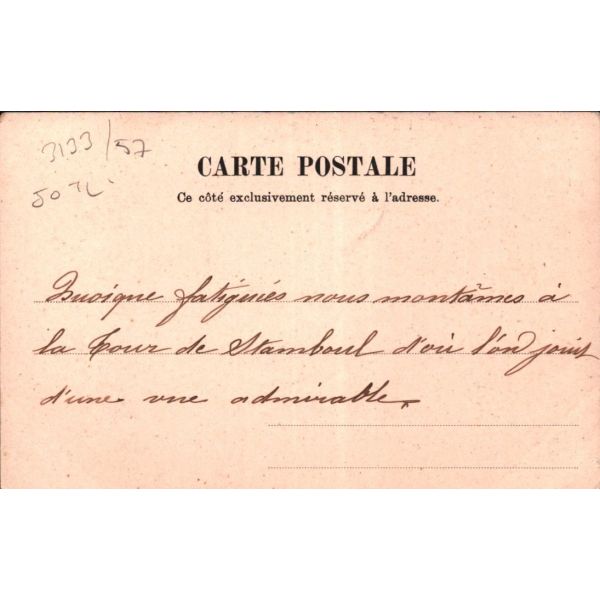 3133/57
50 TL
CARTE POSTALE
Ce côté exclusivement réservé à l'adresse.
Quoique fatiguées nous montâmes à
la Tour de Stamboul d'où l'on jouit
d'une vue admirable.